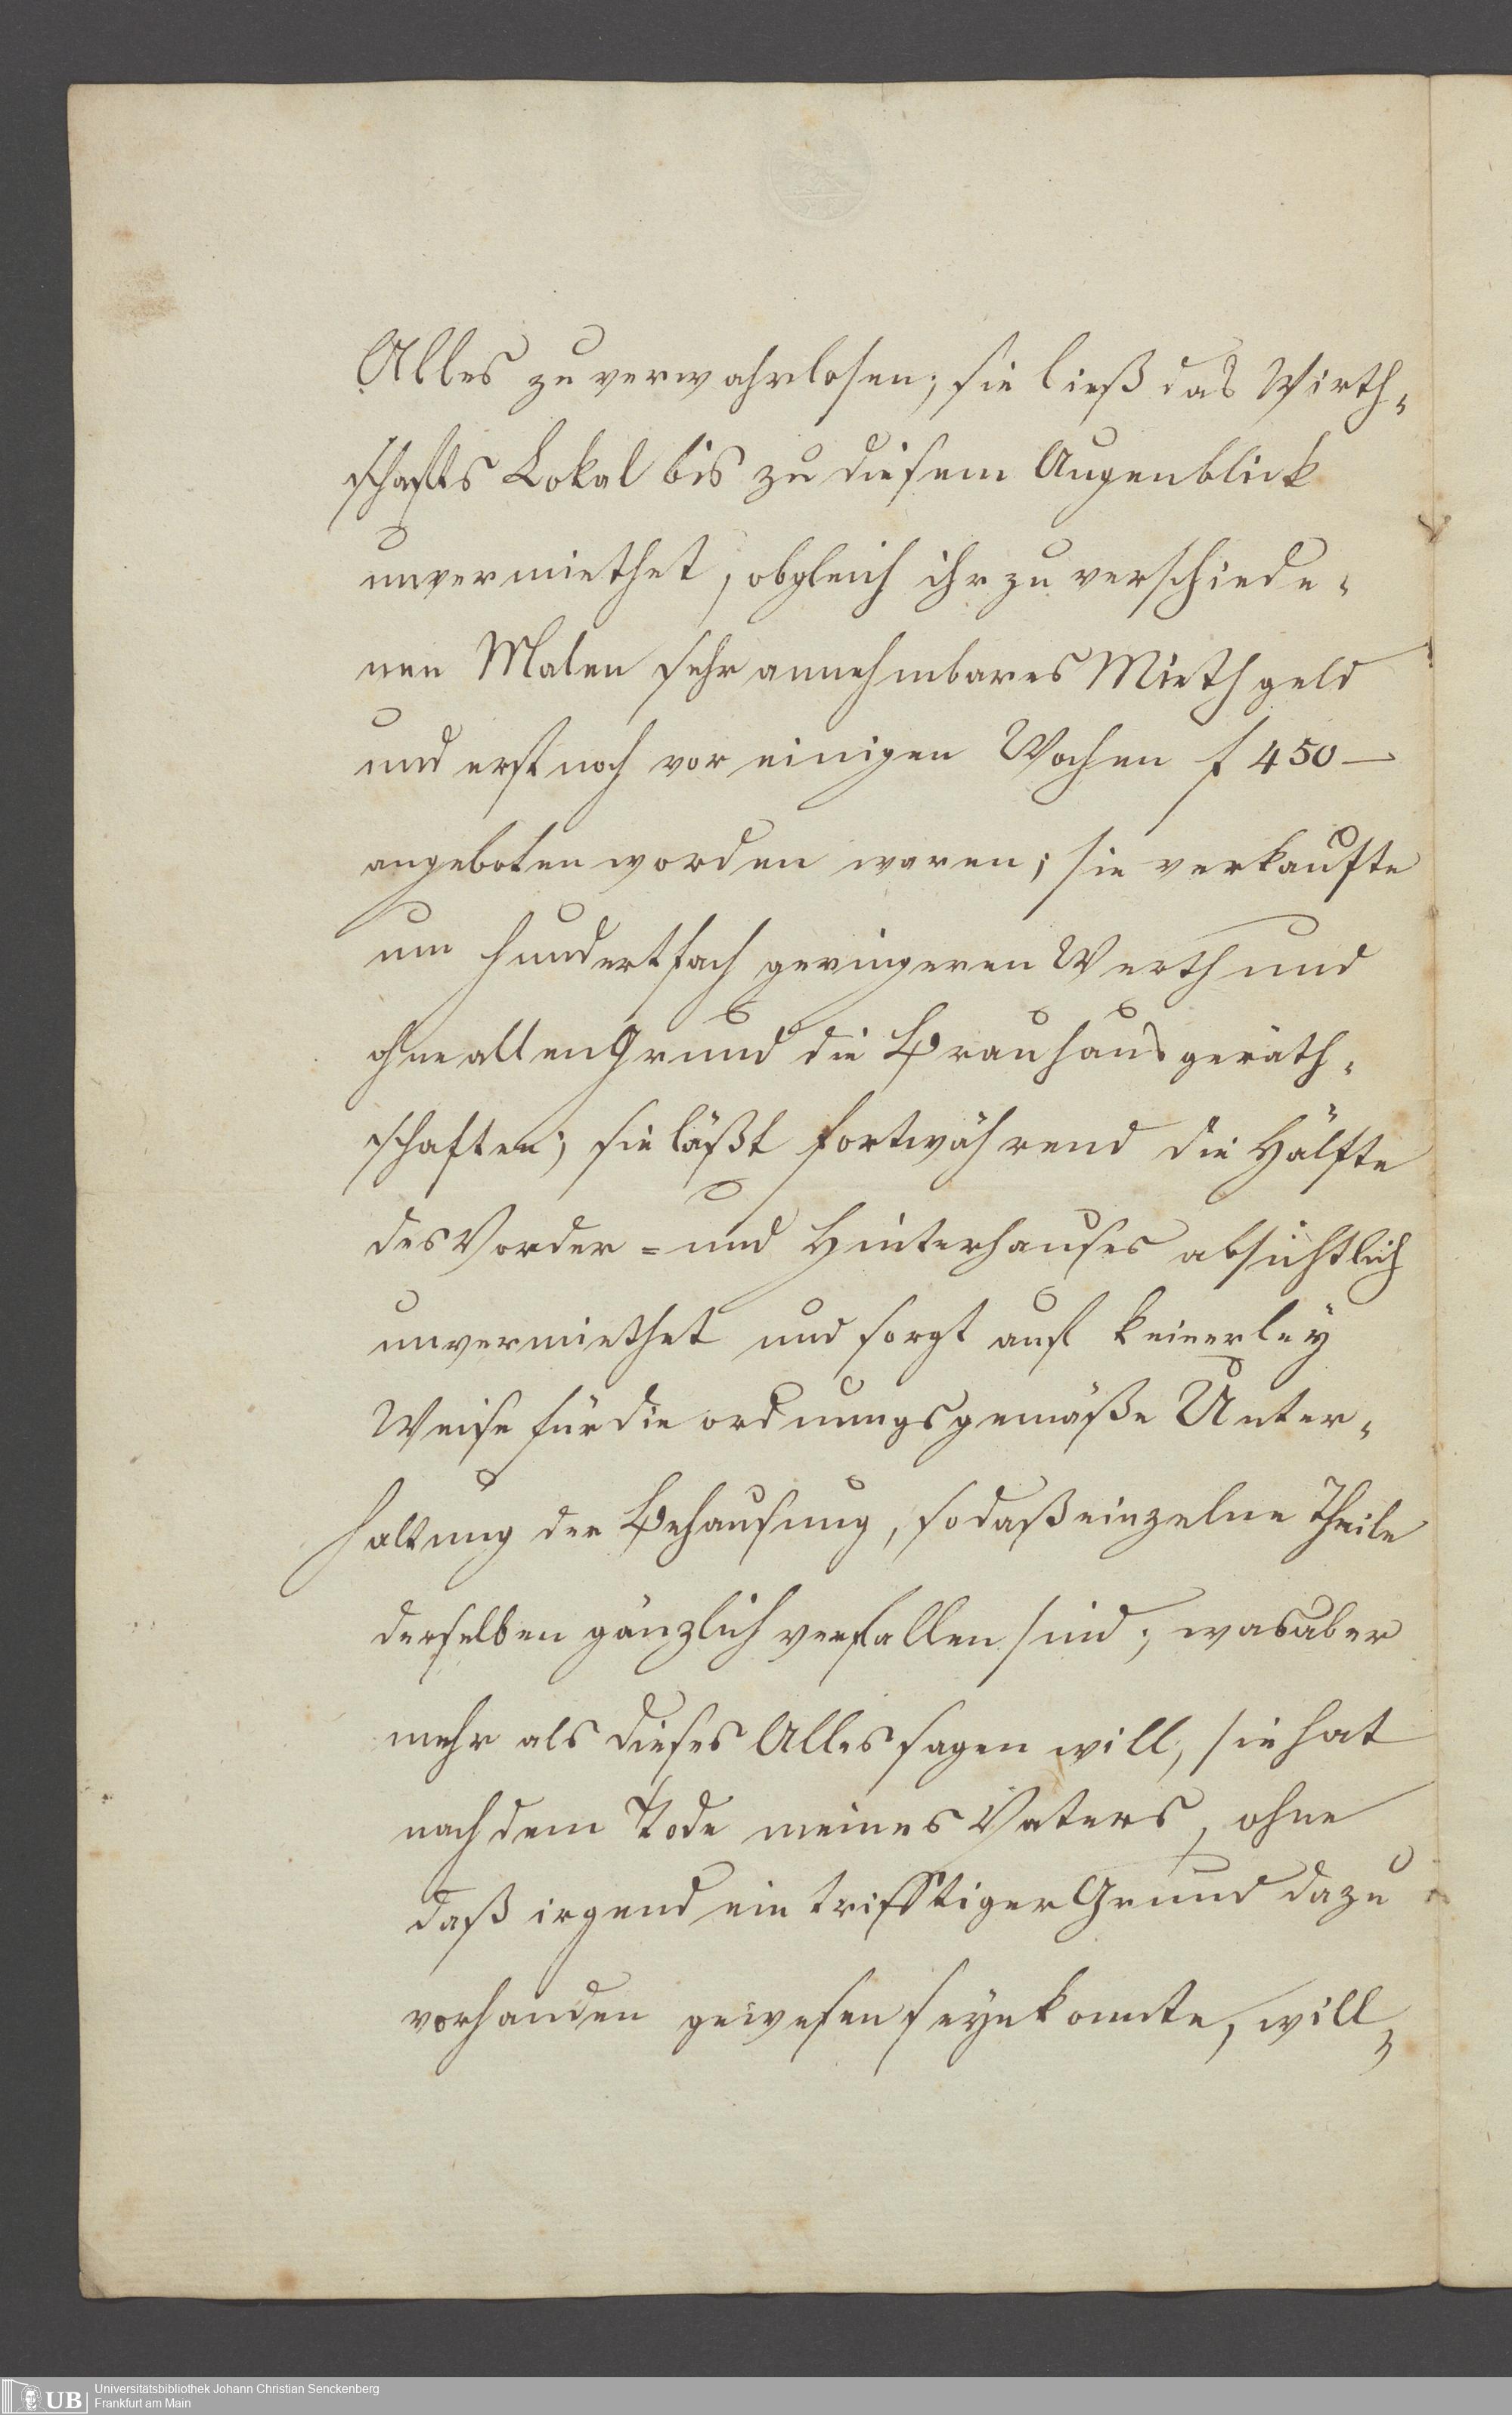 Alles zu verwahrlosen; sie ließ das Wirth,
schafts Lokal bis zu diesem Augenblick
unvermiethet, obgleich ihr zu verschiede,
nen Malen sehr annehmbares Miethgeld
und erst noch vor einigen Wochen f 450 —
angeboten worden waren; sie verkaufte
um hundertfach geringeren Werth und
ohne allen Grund die Brauhausgeräth,
schaften; sie läßt fortwährend die Hälfte
des Vorder = und Hinterhauses absichtlich
unvermiethet und sorgt auf keinerley
Weise für die ordnungsgemäße Unter,
haltung der Behausung, sodaß einzelne Theile
derselben gänzlich verfallen sind; was aber
mehr als dieses Alles sagen will, sie hat
nach dem Tode meines Vaters, ohne
daß irgend ein trifftiger Grund dazu
vorhanden gewesen seyn konnte, will,
UB
Universitätsbibliothek Johann Christian Senckenberg
Frankfurt am Main